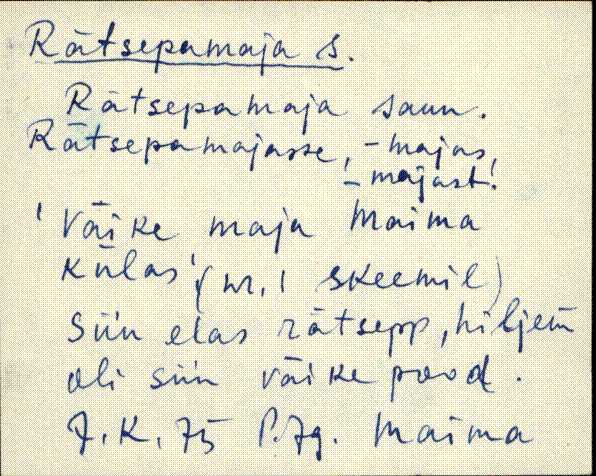 Rätsepamaja s.
Rätsepamaja saun.
Rätsepamajasse, -majas,
-majast.
'Väike maja Maima
külas' (nr. 1 skeemil)
Siin elas rätsepp, hiljem
oli siin väike pood.
J. K. 75 P.Jg. Maima